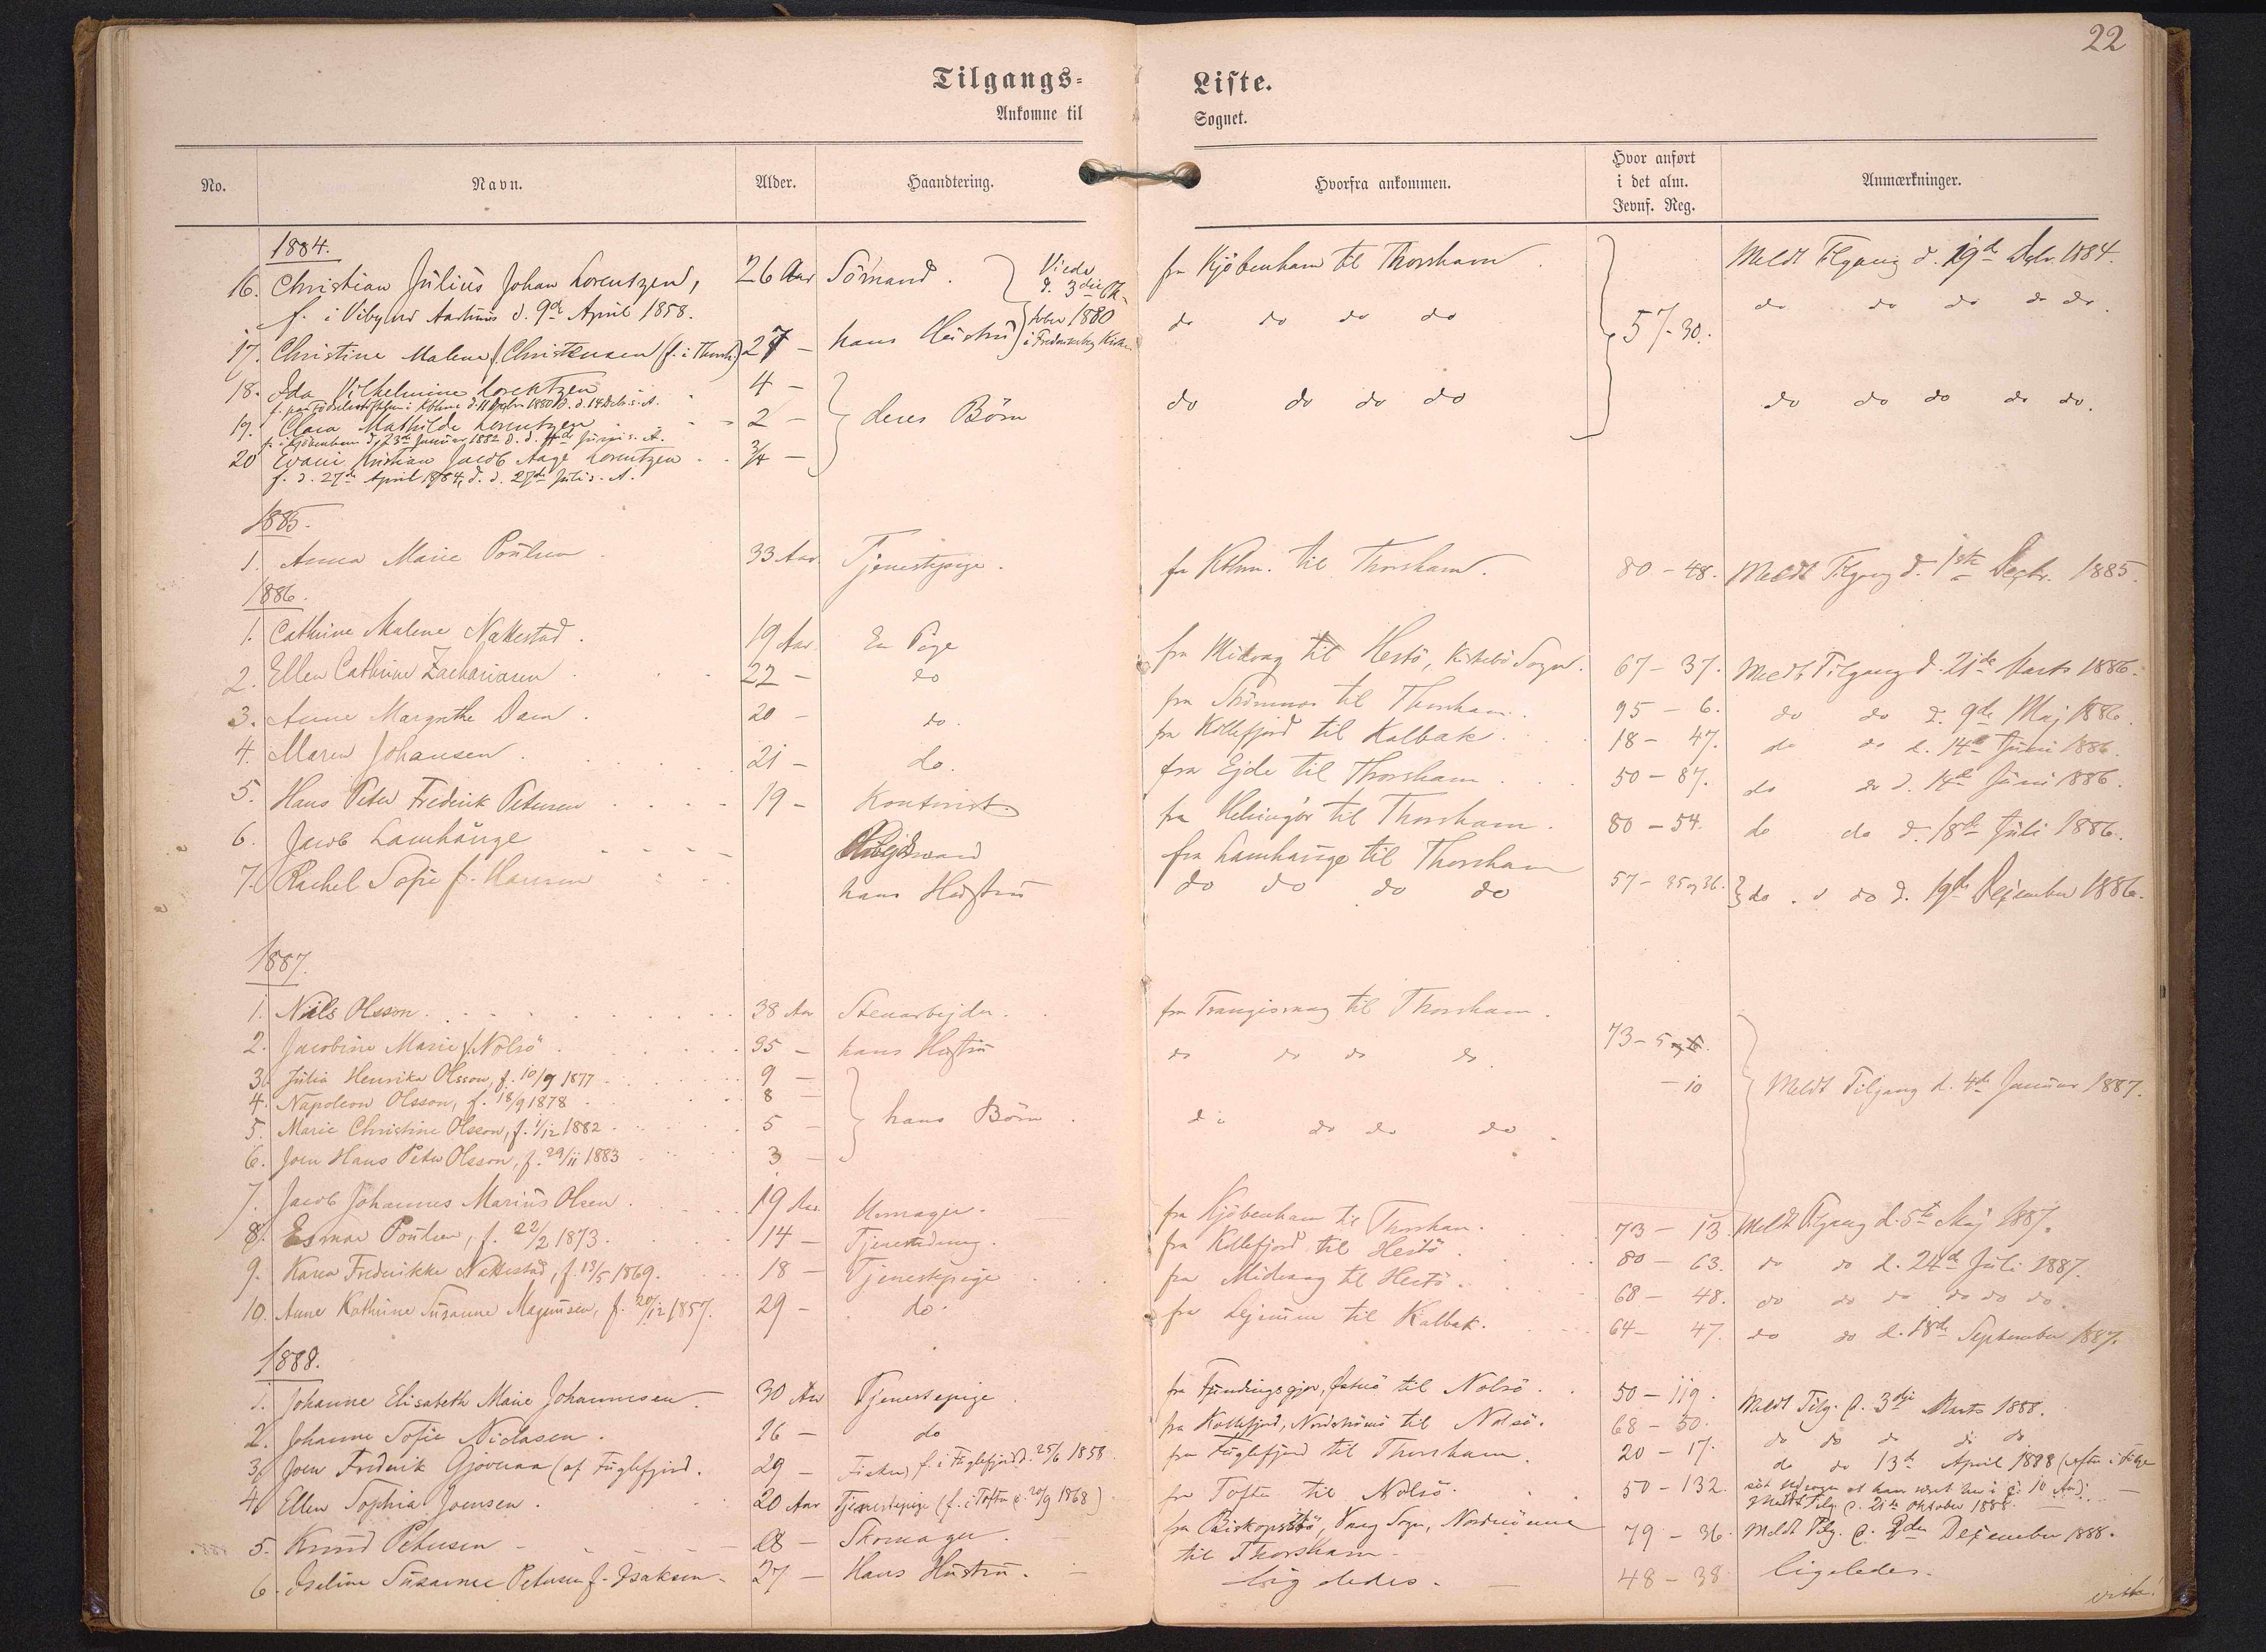 22
Tilgangs=
Liste.
Ankomne til
Sognet.
No. Navn. Alder. Haandtering. Hvorfra ankommen. Hvor anført i det alm. Jevnf. Reg. Anmærkninger.
1884.
16. Christian Julius Johan Lorentzen, 26 Aar Sömand. fra Kjöbenhavn til Thorshavn. Meldt Tilgang d. 19de 1884.
f. i Viby ved Aarhuus d. 9de April 1858. Viede d. 3die Oktober 1880 i Frederiksberg Kirke
17. Christine Malene f. Christensen (f. i Thorsh.) 27 — hans Hustru do do do do 57-30. do do do do do.
18. Ida Vilhelmine Lorentzen 4 —
19. Clara Mathilde Lorentzen 2 — deres Börn do do do do do do do do do.
f. i Kjöbenhavn d. 23de Januar 1882 D. d. Juni s. A.
20 Kristian Jacob Aage Lorentzen 3/4 —
f. d. 27de April 1884, D. d. 27de Juli s. A.
1885.
1. Anna Marie Poulsen 33 Aar. Tjenestepige. fra Kbhvn. til Thorshavn. 80 - 48. Meldt Tilgang d. 1ste Septbr. 1885.
1886.
1. Cathrine Malene Nattestad. 19 Aar. En Pige fra Midvaag til Hestö, Kirkebö Sogn. 67 - 37. Meldt Tilgang d. 21de Marts 1886.
2. Ellen Cathrine Zachariasen 22 — do fra Strömnæs til Thorshavn. 95 - 6. do do d. 9de Maj 1886.
3. Anne Margrethe Dam. 20 — do. fra Kollefjord til Kalbak. 18 - 47. do do d. 14de Juni 1886.
4. Maren Johansen. 21 — do. fra Ejde til Thorshavn 50 - 87. do do d. 14de Juni 1886.
5. Hans Peter Frederik Petersen 19 — Kontorist. fra Helsingör til Thorshavn. 80 - 54. do do d. 18de Juli 1886.
6. Jacob Lamhauge Arbejdsmand fra Lamhauge til Thorshavn
7. Rachel Sofie f. Hansen hans Hustru do do do do 57 - 35 og 36. do. do d. 19de Dezember 1886.
1887.
1. Niels Olsson. 38 Aar Stenarbejder. fra Trangisvaag til Thorshavn.
2. Jacobine Marie f. Nolsö 35 — hans Hustru do do do do. 73 - 5 og 6.
3. Julia Henrika Olsson, f. 10/9 1877 9 —
4. Napoleon Olsson, f. 18/9 1878 8 — - 10 Meldt Tilgang d. 4de Januar 1887.
5. Marie Christine Olsson, f. 1/12 1882 5 — hans Börn do do do do.
6. Joen Hans Peter Olsson, f. 29/11 1883 3 —
7. Jacob Johannes Marius Olsen. 19 Aar. Urmager. fra Kjöbenhavn til Thorshavn. 73 - 13 Meldt Tilgang d. 5te Maj 1887.
8. Esmar Poulsen, f. 22/2 1873. 14 — Tjenestedreng. fra Kollefjord til Hestö. 80 - 63. do do d. 24de Juli 1887.
9. Karen Frederikke Nattestad, f. 13/5 1869. 18 — Tjenestepige fra Midvaag til Hestö. 68 - 48. do do do do do do.
10. Anne Kathrine Susanne Magnusen, f. 20/12 1857. 29 — do. fra Lejnum til Kalbak. 64 - 47. do do d. 18de September 1887.
1888.
1. Johanne Elisabeth Marie Johannesen. 30 Aar Tjenestepige fra Fundingsgjov, Østerö til Nolsö. 50 - 119. Meldt Tilg. d. 3die Marts 1888.
2. Johanne Sofie Niclasen. 26 — do fra Kollefjord, Nordströmö til Nolsö. 68 - 50. do do do do do
3. Joen Frederik Gjoveraa (af Fuglefjord. 29 — Fisker f. i Fuglefjord d. 25/6 1858. fra Fuglefjord til Thorshavn. 20 - 17. do do 13de April 1888 (efter i Følge
4. Ellen Sophia Joensen. 20 Aar Tjenestepige (f. i Tofte d. 20/9 1868) fra Tofte til Nolsö. 50 - 132. sit Udsagn at have været her i c. 10 Aar).
Meldt Tilg. d. 21de Oktober 1888.
5. Knud Petersen 28 — Skomager. fra Biskopstö, Vaag Sogn, Norderöerne til Thorshavn. 79 - 36. Meldt Tilg. d. 2den Dezember 1888.
6. Iseline Susanne Petersen f. Isaksen. 27 — Hans Hustru. ligeledes. 48 - 38 ligeledes.